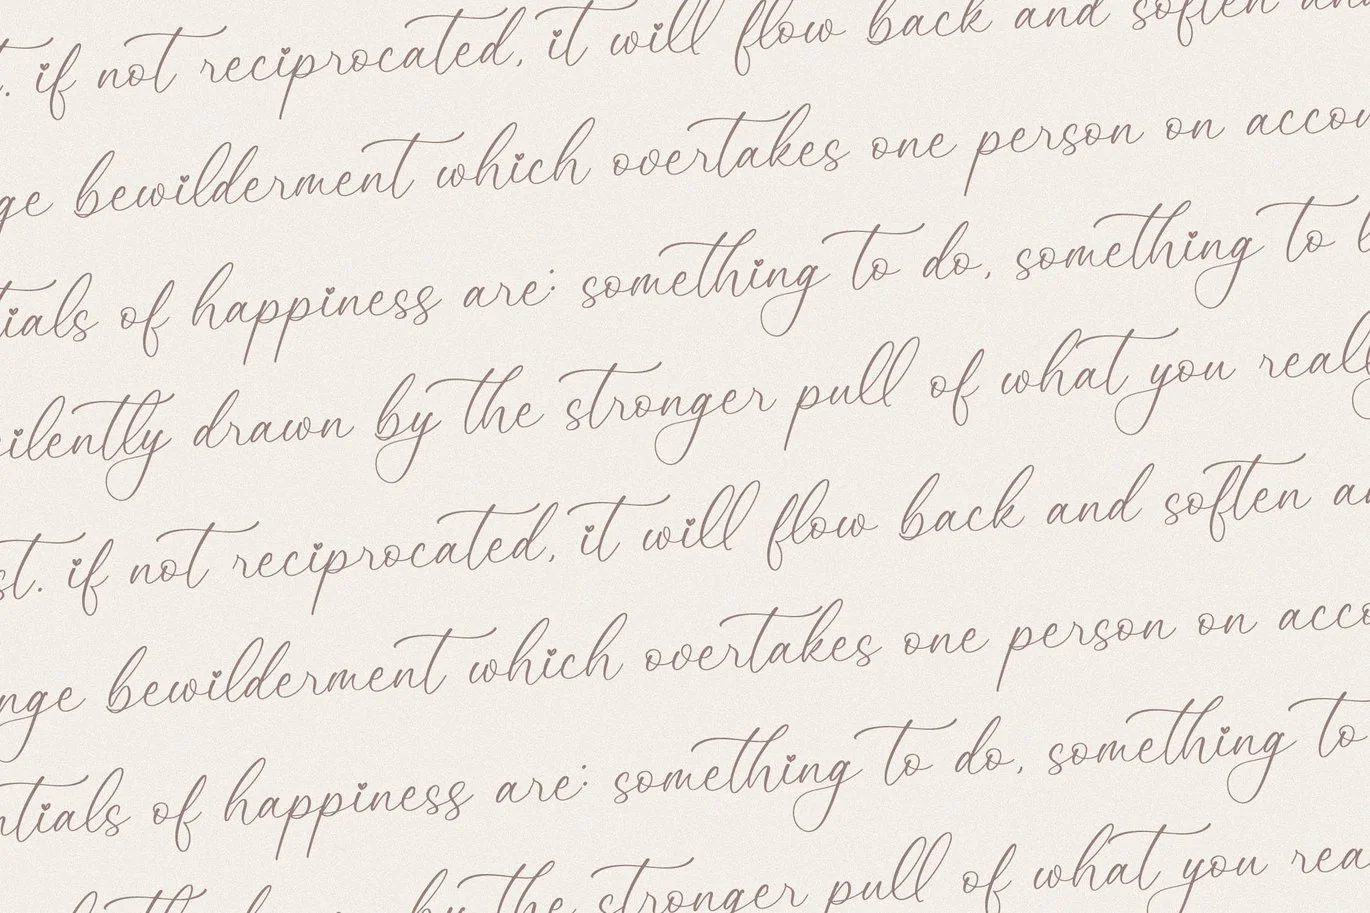 . if not reciprocated, it will flow back and soften and
ge bewilderment which overtakes one person on accou
tials of happiness are: something to do, something to l
silently drawn by the stronger pull of what you reall
st. if not reciprocated, it will flow back and soften a
nge bewilderment which overtakes one person on acco
ntials of happiness are: something to do, something to
by the stronger pull of what you rea